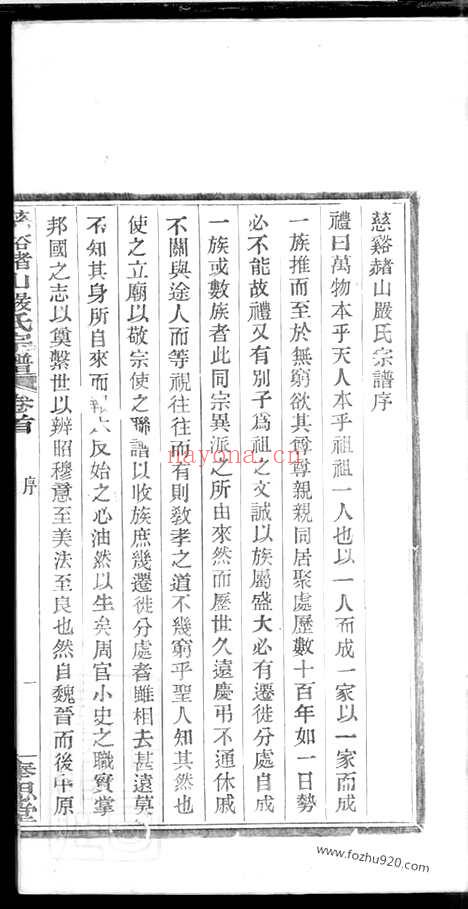 慈谿赭山嚴氏宗譜序
禮曰萬物本乎天人本乎祖祖一人也以一人而成一家以一家而成
一族推而至於無窮欲其尊尊親親同居聚處歷數十百年如一日勢
必不能故禮又有別子爲祖之文誠以族屬盛大必有遷徙分處自成
一族或數族者此同宗異派之所由來然而歷世久遠慶弔不通休戚
不關與途人而等視往往而有則敎孝之道不幾窮乎聖人知其然也
使之立廟以敬宗使之聯譜以收族庶幾遷徙分處者雖相去甚遠莫
不知其身所自來而報本反始之心油然以生矣周官小史之職實掌
邦國之志以奠繫世以辨昭穆意至美法至良也然自魏晉而後中原
谿赭山嚴氏宗譜 卷首
序
一
堂
nayona.cn
www.fozhu920.com